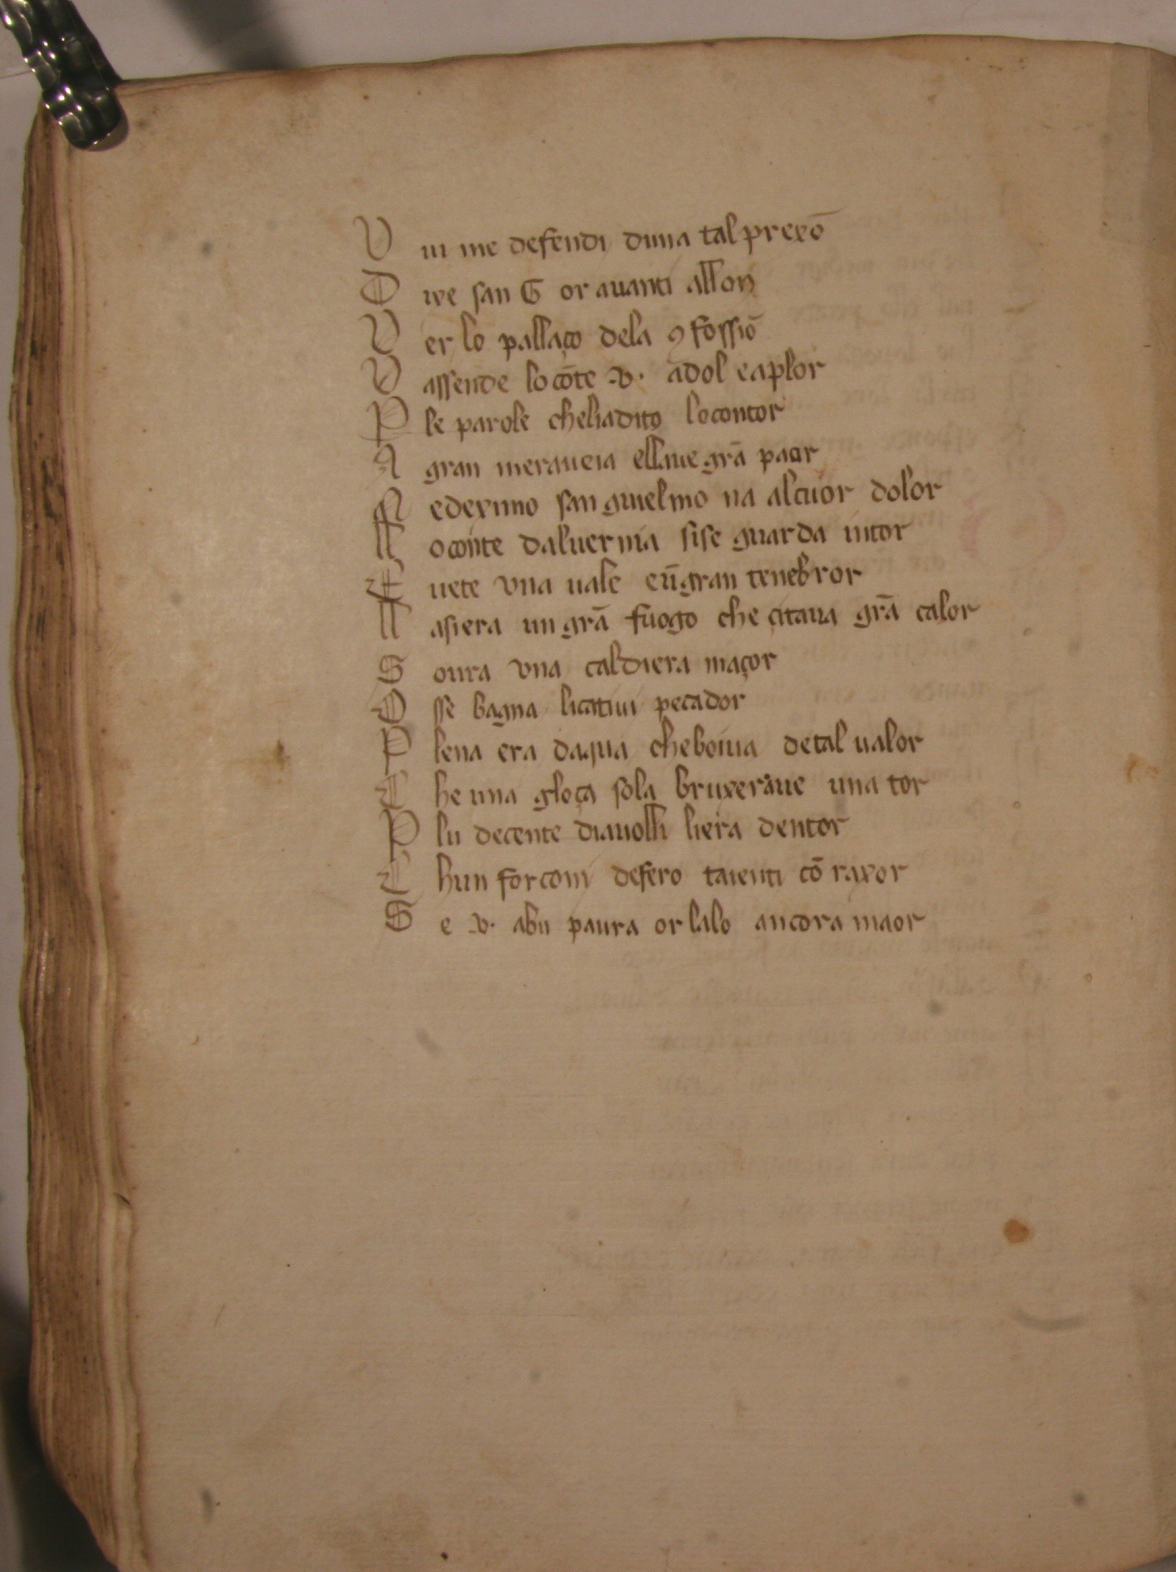 V ui me defendi duna tal prexō
D ixe san G or auanti allon
V er lo pallaço dela ꝯfossiō
V assende lo cōte .v. adol e aplor
P le parole che lia dito lo contor
A gran meraueia ell aue grā paor
N edexmo san guielmo na al cuor dolor
L o conte daluernia si se guarda intor
E uete vna uale e ū gran tenebror
L asiera un grā fuogo che çitaua grā calor
S oura vna caldiera maçor
O sse bagna li catiui pecador
P lena era daqua che boiua de tal ualor
C he una gloça sola bruxeraue una tor
P lu de cente diauolli liera dentor
C hun forconi de fero taienti cō raxor
S e .v. abu paura or lalo ancora maor